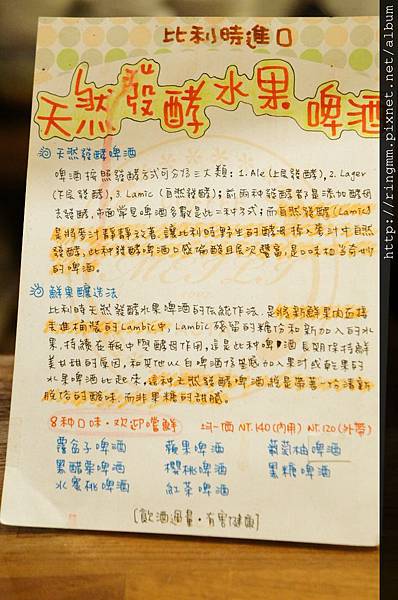 比利時進口
天然發酵水果啤酒
天然發酵啤酒
啤酒按照發酵方式可分為三大類：1. Ale(上層發酵), 2. Lager
(下層發酵), 3. Lamic (自然發酵)；前兩種發酵都是添加酵母
去發酵，市面常見啤酒多數是此二種方式；而自然發酵(Lamic)
是將麥汁靜靜放著，讓比利時野生的酵母掉入麥汁中自然
發酵，此種發酵啤酒口感偏酸且層次豐富，是口味相當奇妙
的啤酒。
鮮果釀造法
比利時天然發酵水果啤酒的傳統作法，是將新鮮果肉直接
丟進桶裝的Lambic中，Lambic殘留的糖份和新加入的水
果，持續在瓶中與酵母作用，這是比利時啤酒長期保持鮮
美甘甜的原因，和其他以白啤酒為基底加入果汁或乾果的
水果啤酒比起來，這種天然發酵啤酒總是帶著一份清新
脫俗的酸味，而非果糖的甜膩。
8種口味・歡迎嚐鮮 均一價 NT.140(內用) NT.120(外帶)
覆盆子啤酒 蘋果啤酒 葡萄柚啤酒
黑醋栗啤酒 櫻桃啤酒 黑糖啤酒
水蜜桃啤酒 紅茶啤酒
[飲酒過量・有害健康]
http://ringmm.pixnet.net/album